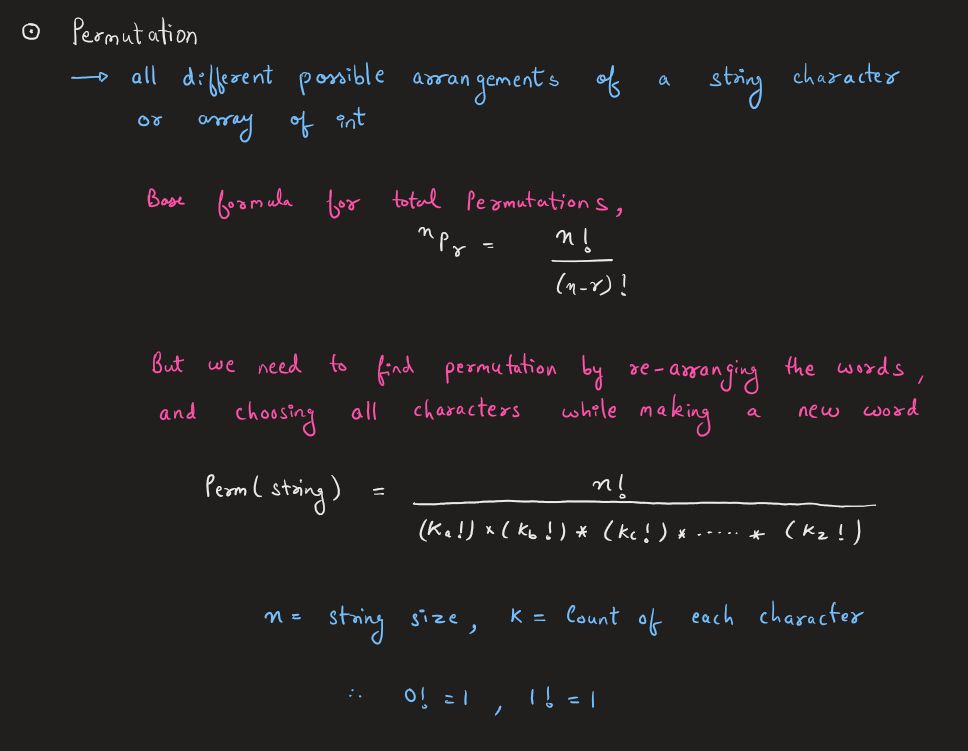 ⊙ Permutation
→ all different possible arrangements of a string character
or array of int
Base formula for total Permutations,
ⁿPᵣ = n! / (n-r)!
But we need to find permutation by re-arranging the words,
and choosing all characters while making a new word
Perm(string) = n! / (Ka!) * (Kb!) * (Kc!) * ..... * (Kz!)
n = string size, K = Count of each character
∴ 0! = 1, 1! = 1